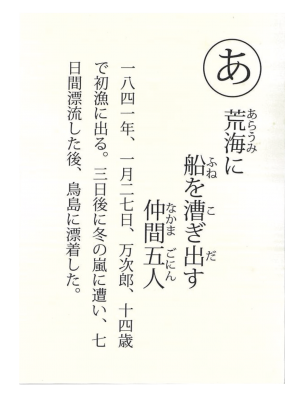 あ
荒海に
船を漕ぎ出す
仲間五人
一八四一年、一月二七日、万次郎、十四歳
で初漁に出る。三日後に冬の嵐に遭い、七
日間漂流した後、鳥島に漂着した。